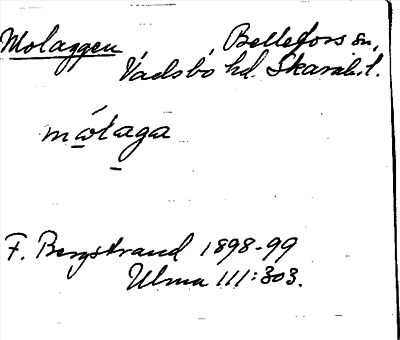 Molaggen Bellefors sn,
Vadsbo hd. Skarab.l.
mo̲laga̲
F. Bergstrand 1898-99
Ulma 111:303.